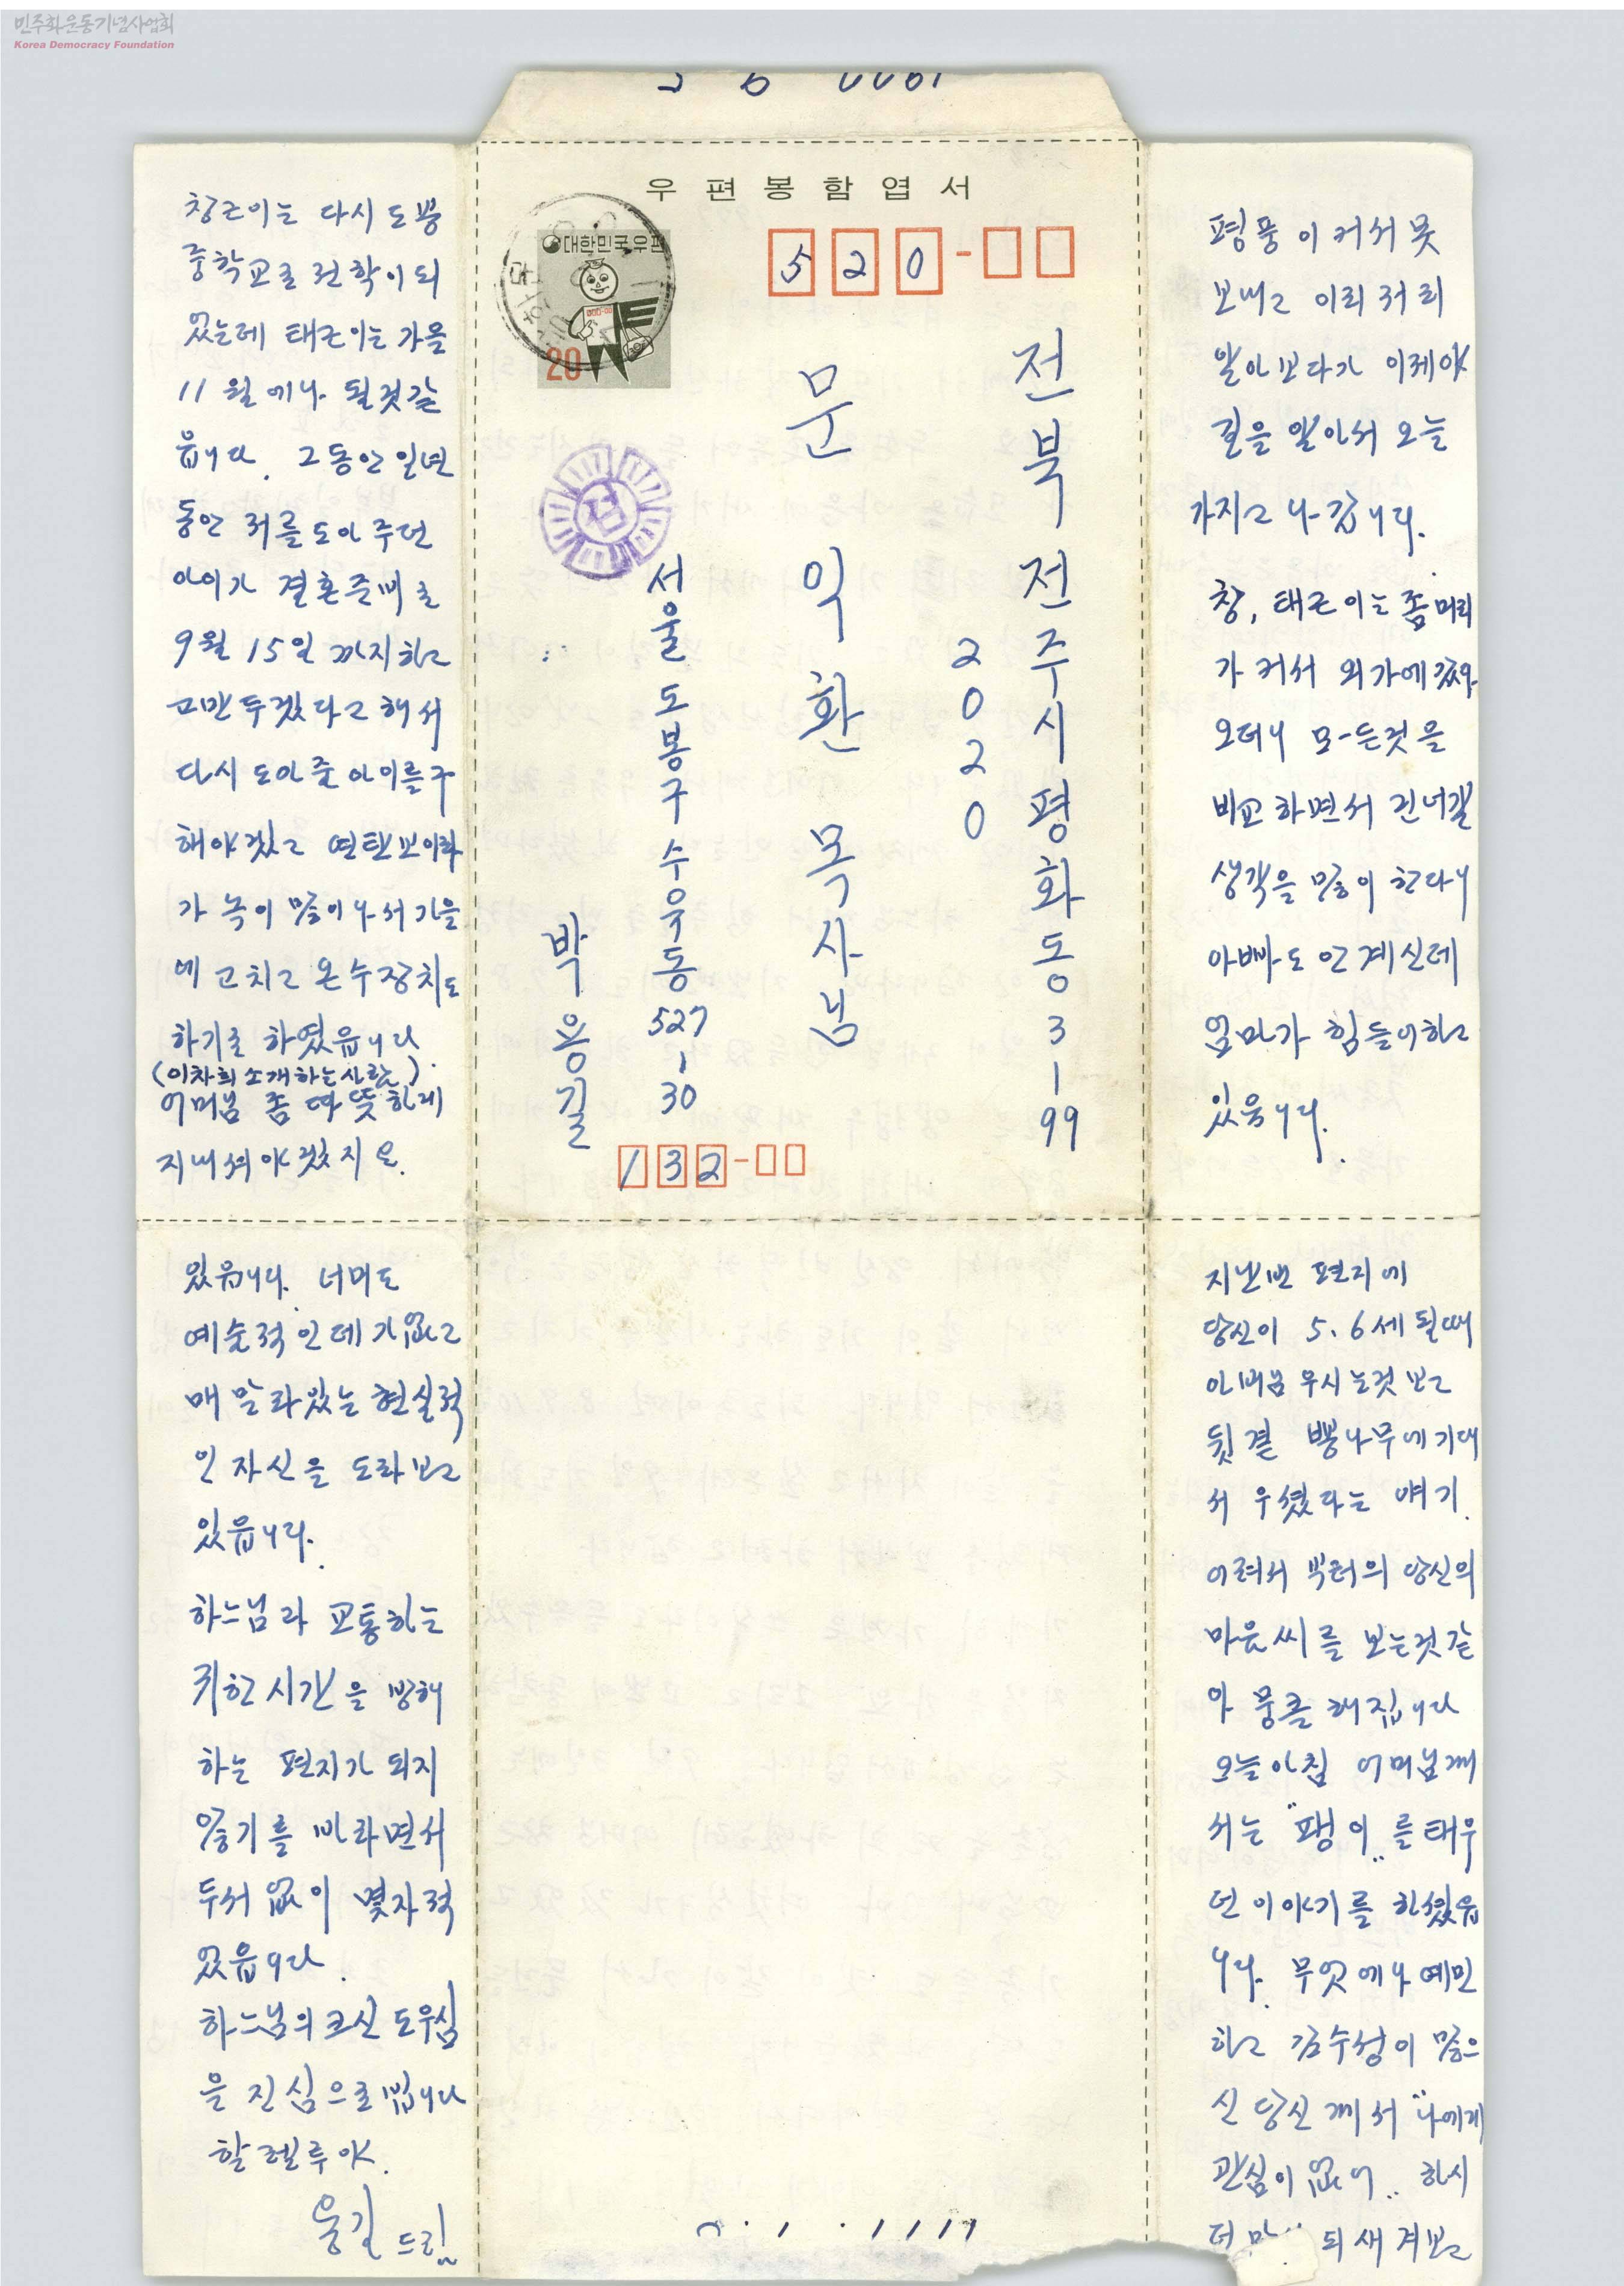 민주화운동기념사업회
Korea Democracy Foundation
우편봉함엽서
대한민국우편
20
520-
전북 전주시 평화동 3-99
2020
문익환 목사님
전
서울 도봉구 수유동 527-30
박용길
132-
평풍이 커서 못
보내고 이리저리
알아보다가 이제야
길을 알아서 오늘
가지고 나갑니다.
창, 태근이는 좀 머리
가 커서 외가에 갔다
오더니 모-든것을
비교하면서 건너갈
생각을 많이 한다니
아빠도 안계신데
엄마가 힘들어하고
있읍니다.
창근이는 다시 도봉
중학교로 전학이 되
었는데 태근이는 가을
11월에나 될것같
읍니다. 그동안 일년
동안 저를 도아 주던
아이가 결혼준비로
9월 15일 까지하고
고만 두겠다고 해서
다시 도아줄 아이를 구
해야겠고 연탄보이라
가 녹이 많이나서 가을
에 고치고 온수장치도
하기로 하였읍니다
(이차희 소개하는사람)
어머님 좀 따뜻하게
지내셔야겠지요.
지난번 편지에
당신이 5, 6세 될때
아버님 우시는것 보고
뒷곁 뽕나무에 기대
서 우셨다는 얘기.
어려서 부터의 당신의
마음씨를 보는것같
아 뭉클해집니다
오늘아침 어머님께
서는 "팽이"를 태우
던 이야기를 하셨읍
니다. 무엇에나 예민
하고 감수성이 많으
신 당신께서 "나에게
관심이 없어" 하시
더 되새겨보고
있읍니다. 너머도
예술적인데가 없고
매말라있는 현실적
인 자신을 도라보고
있읍니다.
하느님과 교통하는
귀한 시간을 방해
하는 편지가 되지
않기를 바라면서
두서없이 몇자적
었읍니다.
하느님의 크신 도우심
을 진심으로 빕니다
할렐루야.
용길 드림